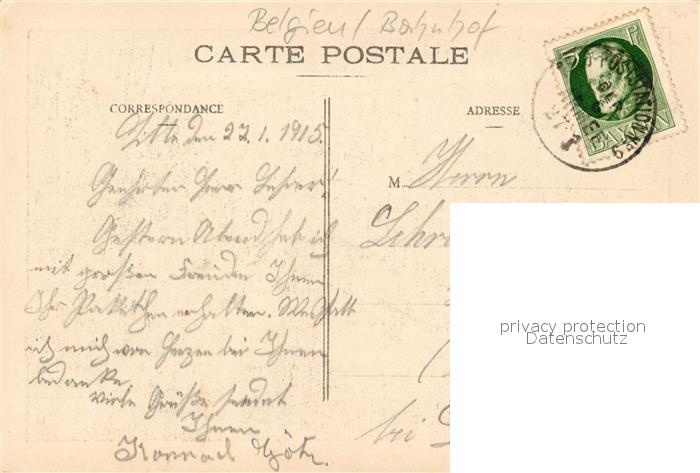 Belgien / Bahnhof
CARTE POSTALE
CORRESPONDANCE
ADRESSE
den 22.1.1915.
Geehrter Herr Lehrer!
Gestern Abend hab ich
mit großen Freuden Ihnen
Ihr erhalten.
ich mich von Herzen bei Ihnen
bedanke.
Viele Grüße sendet
Ihnen
Konrad Götz.
M Herrn
bei
5 Pf
BAYERN
privacy protection
Datenschutz